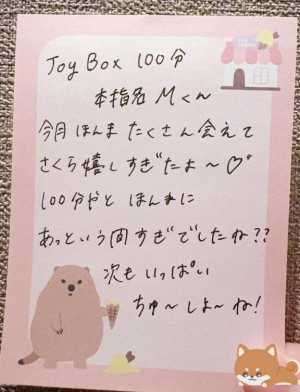 Joy Box 100分
本指名 Mくん
今月ほんまたくさん会えて
さくら嬉しすぎたよ〜♡
100分やとほんまに
あっという間すぎでしたね??
次もいっぱい
ちゅ〜しよ〜ね!